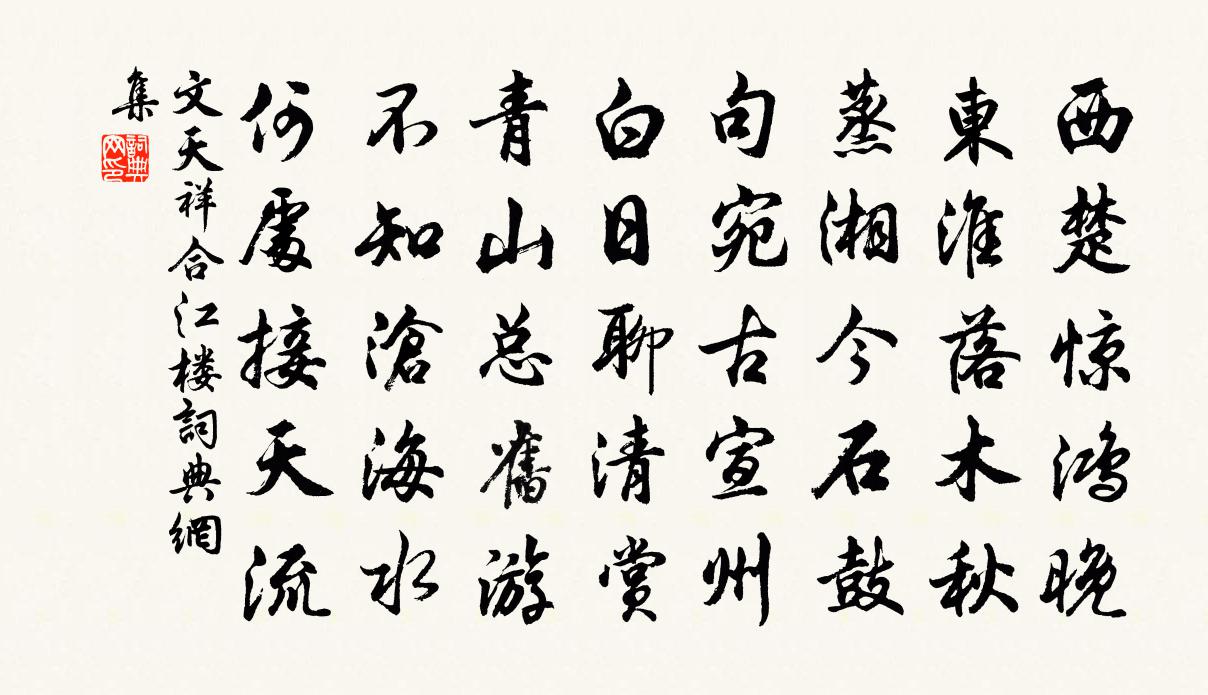 西楚惊鸿晚
東淮落木秋
蒸湘今石鼓
句宛古宣州
白日聊清賞
青山总舊游
不知滄海水
何處接天流
文天祥合江楼詞典網
集
詞典
网印